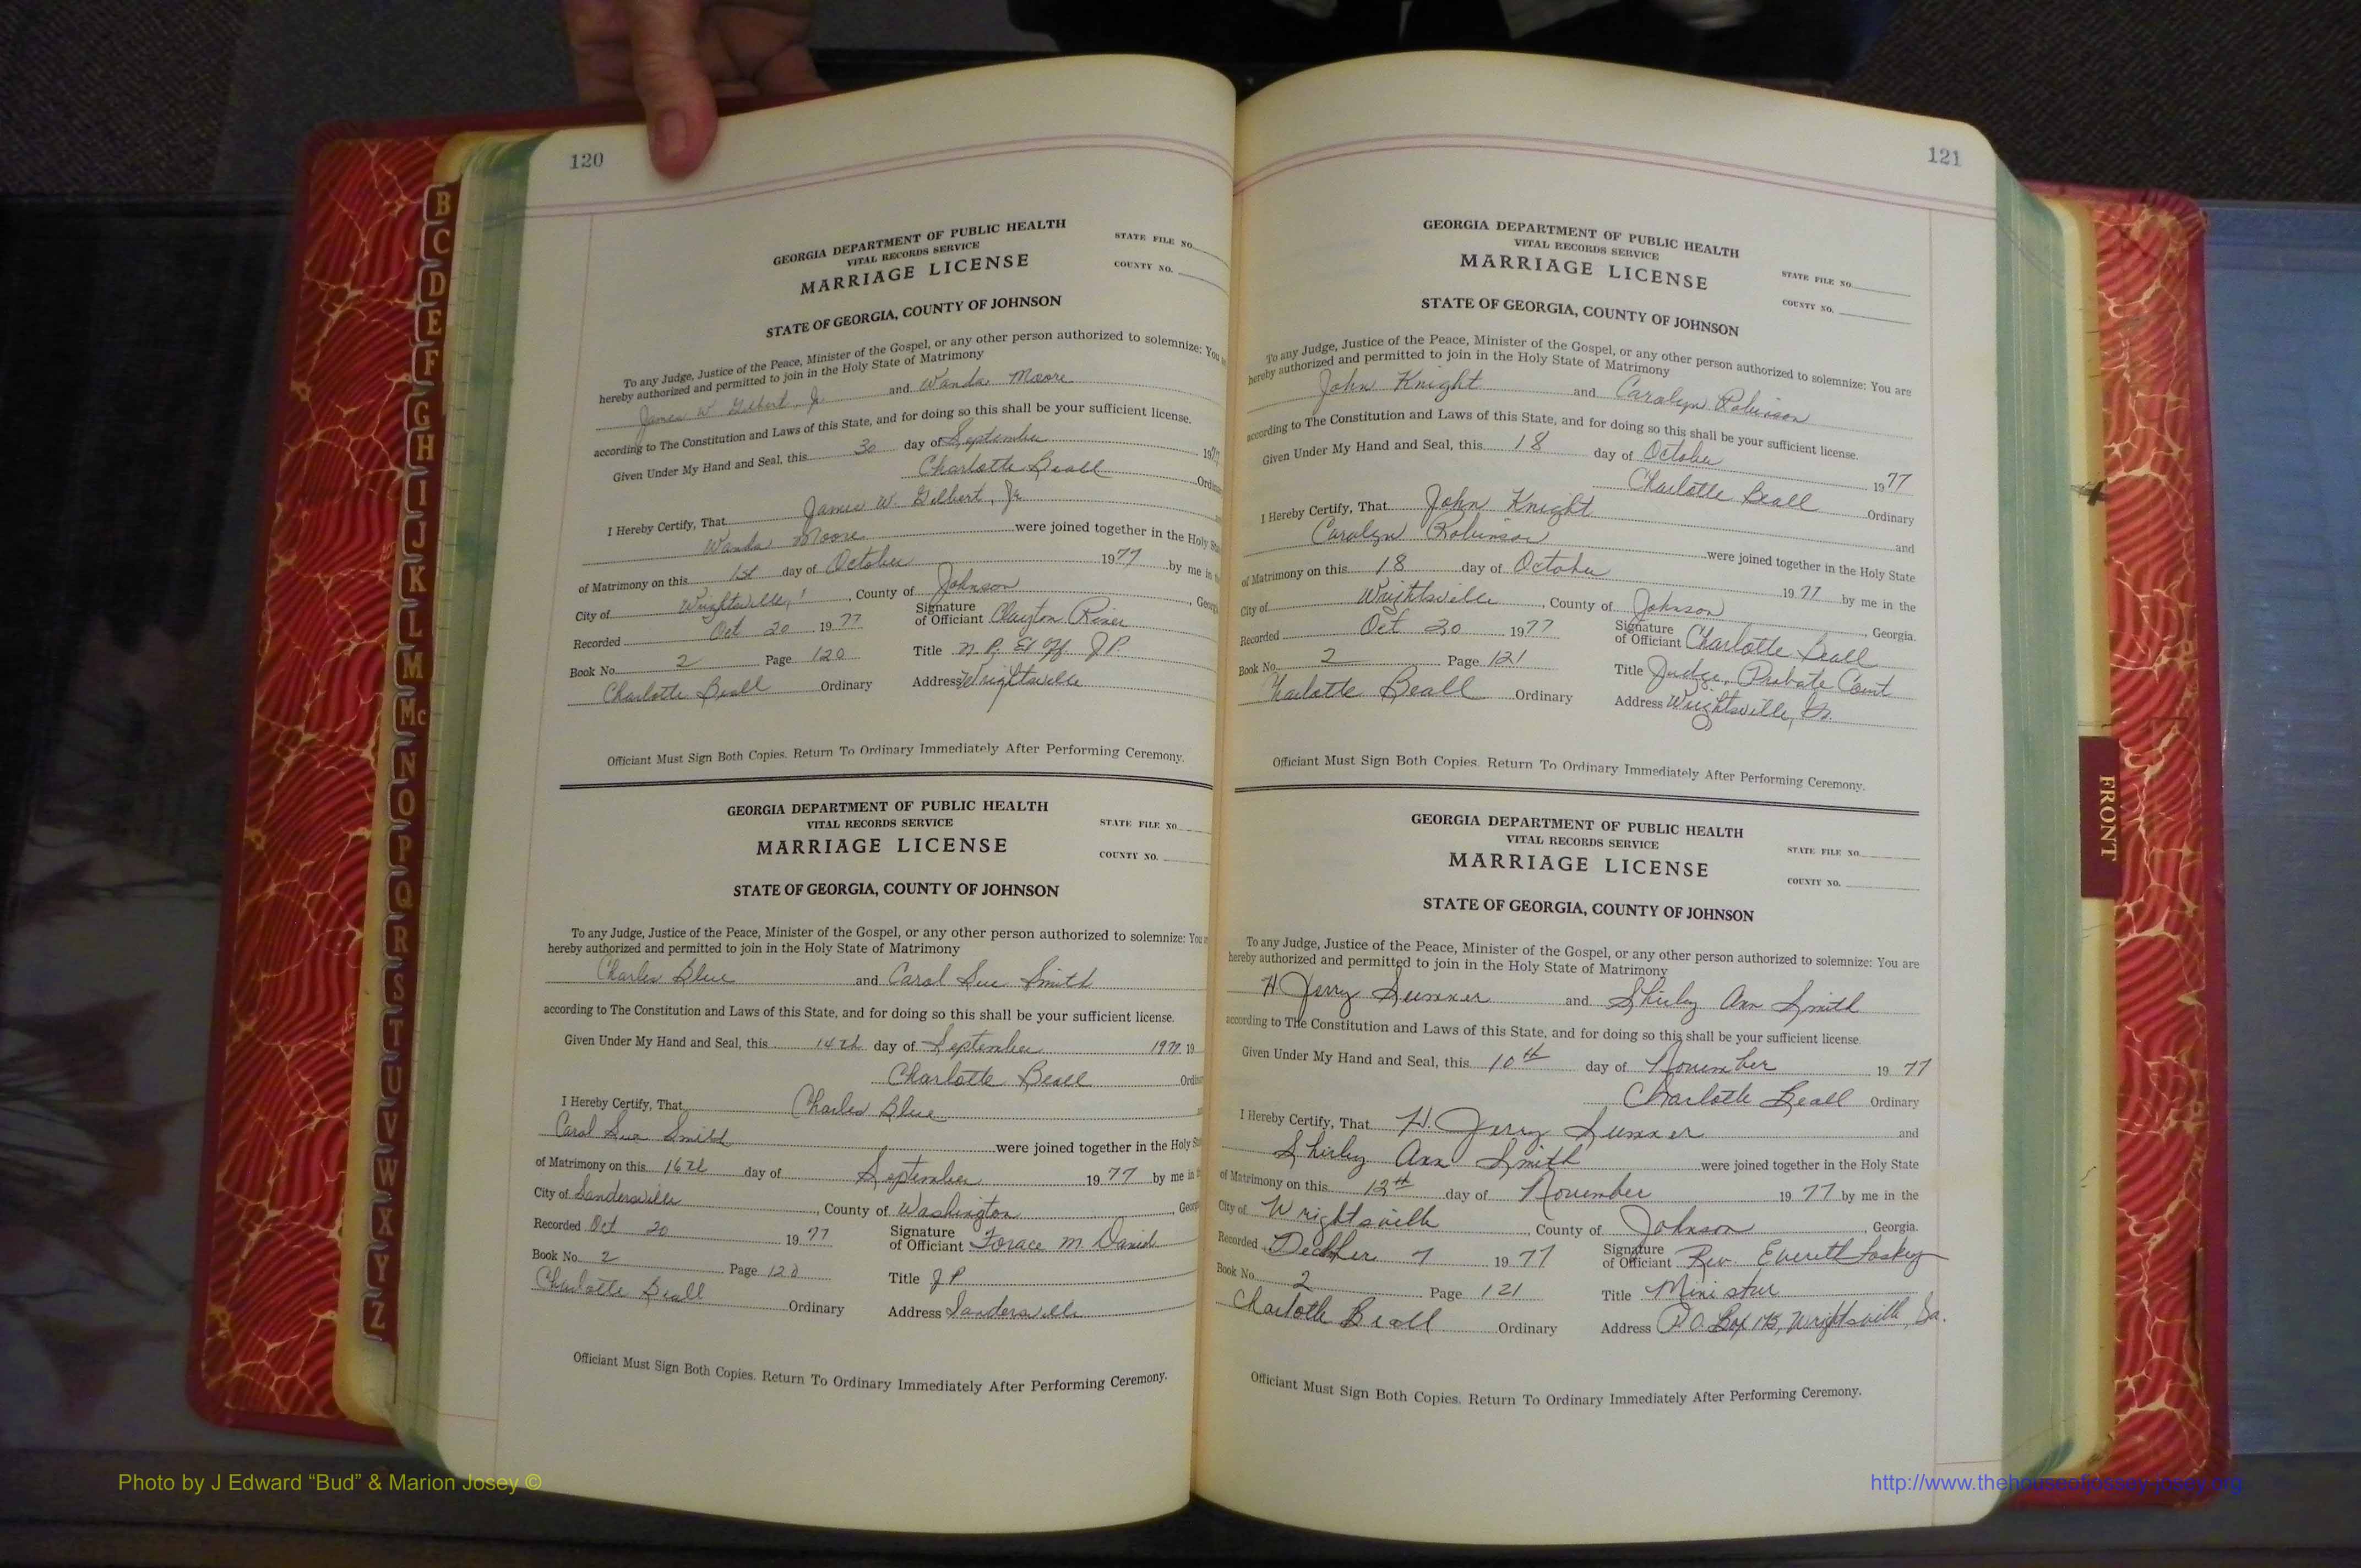 120
GEORGIA DEPARTMENT OF PUBLIC HEALTH
VITAL RECORDS SERVICE
MARRIAGE LICENSE
STATE FILE NO.
COUNTY NO.
STATE OF GEORGIA, COUNTY OF JOHNSON
To any Judge, Justice of the Peace, Minister of the Gospel, or any other person authorized to solemnize: You
hereby authorized and permitted to join in the Holy State of Matrimony
James W. Gilbert, Jr. and Wanda Moore
according to The Constitution and Laws of this State, and for doing so this shall be your sufficient license.
Given Under My Hand and Seal, this 30 day of September 1977
Charlotte Beall Ordin
I Hereby Certify, That James W. Gilbert, Jr.
Wanda Moore were joined together in the Holy
of Matrimony on this 1st day of October 1977 by me in
City of Wrightsville, County of Johnson, Georg
Recorded Oct 20 1977 Signature of Officient Clayton Riner
Book No. 2 Page 120 Title N.P. JP
Charlotte Beall Ordinary Address Wrightsville
Officiant Must Sign Both Copies. Return To Ordinary Immediately After Performing Ceremony.
GEORGIA DEPARTMENT OF PUBLIC HEALTH
VITAL RECORDS SERVICE
MARRIAGE LICENSE
STATE FILE NO.
COUNTY NO.
STATE OF GEORGIA, COUNTY OF JOHNSON
To any Judge, Justice of the Peace, Minister of the Gospel, or any other person authorized to solemnize: You
hereby authorized and permitted to join in the Holy State of Matrimony
Charles Blue and Carol Sue Smith
according to The Constitution and Laws of this State, and for doing so this shall be your sufficient license.
Given Under My Hand and Seal, this 14th day of September 1977 19
Charlotte Beall Ordin
I Hereby Certify, That Charles Blue
Carol Sue Smith were joined together in the Holy
of Matrimony on this 16th day of September 1977 by me in
City of Sandersville, County of Washington, Georg
Recorded Oct 20 1977 Signature of Officient Forace M. Daniel
Book No. 2 Page 120 Title JP
Charlotte Beall Ordinary Address Sandersville
Officiant Must Sign Both Copies. Return To Ordinary Immediately After Performing Ceremony.
121
GEORGIA DEPARTMENT OF PUBLIC HEALTH
VITAL RECORDS SERVICE
MARRIAGE LICENSE
STATE FILE NO.
COUNTY NO.
STATE OF GEORGIA, COUNTY OF JOHNSON
To any Judge, Justice of the Peace, Minister of the Gospel, or any other person authorized to solemnize: You are
hereby authorized and permitted to join in the Holy State of Matrimony
John Knight and Carolyn Robinson
according to The Constitution and Laws of this State, and for doing so this shall be your sufficient license.
Given Under My Hand and Seal, this 18 day of October 1977
Charlotte Beall Ordinary
I Hereby Certify, That John Knight and
Carolyn Robinson were joined together in the Holy State
of Matrimony on this 18 day of October 1977 by me in the
City of Wrightsville, County of Johnson, Georgia.
Recorded Oct 20 1977 Signature of Officiant Charlotte Beall
Book No. 2 Page 121 Title Judge, Probate Court
Charlotte Beall Ordinary Address Wrightsville, Ga.
Officiant Must Sign Both Copies. Return To Ordinary Immediately After Performing Ceremony.
GEORGIA DEPARTMENT OF PUBLIC HEALTH
VITAL RECORDS SERVICE
MARRIAGE LICENSE
STATE FILE NO.
COUNTY NO.
STATE OF GEORGIA, COUNTY OF JOHNSON
To any Judge, Justice of the Peace, Minister of the Gospel, or any other person authorized to solemnize: You are
hereby authorized and permitted to join in the Holy State of Matrimony
H Jerry Sumner and Shirley Ann Smith
according to The Constitution and Laws of this State, and for doing so this shall be your sufficient license.
Given Under My Hand and Seal, this 10th day of November 1977
Charlotte Beall Ordinary
I Hereby Certify, That H. Jerry Sumner and
Shirley Ann Smith were joined together in the Holy State
of Matrimony on this 12th day of November 1977 by me in the
City of Wrightsville, County of Johnson, Georgia.
Recorded 7 1977 Signature of Officiant Rev. Everett
Book No. 2 Page 121 Title Minister
Charlotte Beall Ordinary Address P.O. Box Wrightsville, Ga.
Officiant Must Sign Both Copies. Return To Ordinary Immediately After Performing Ceremony.
B
C
D
E
F
G
H
I
J
K
L
M
Mc
N
O
P
Q
R
S
T
U
V
W
X
Y
Z
FRONT
Photo by J Edward “Bud” & Marion Josey ©
http://www.thehouseofjossey-josey.org